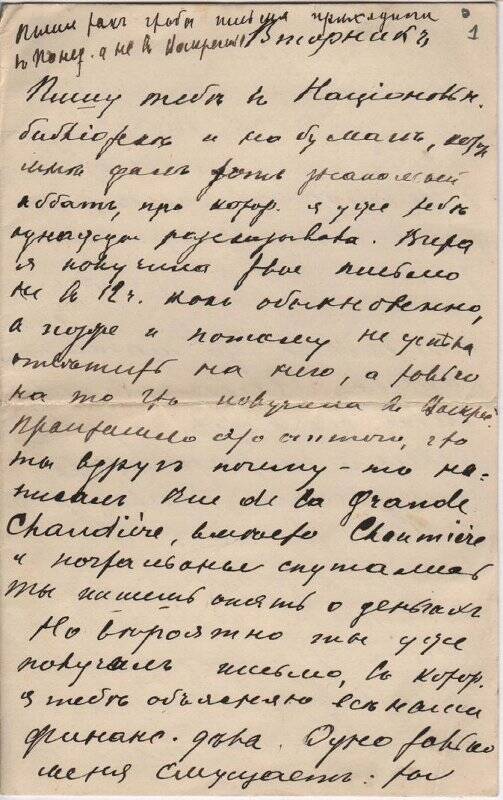 Пиши такъ чтобы письма приходили
въ Понед. а не въ Воскресен. Вторникъ,
1
Пишу тебѣ въ Націоналън.
библіотекѣ и на бумагѣ, котор.
мнѣ далъ
аббатъ, про котор. я уже тебѣ
однажды разсказывала. Вчера
я получила твое письмо
не въ 12 ч. какъ обыкновенно,
а позже и потому не успѣла
отвѣтить на него, а только
на то что получила въ Воскрес.
Произошло это оттого, что
ты вдругъ почему-то на-
писалъ Rue de la Grande
Chaudière, вмѣсто Chaumière
и почтальоны спутались
Ты пишешь опять о деньгахъ
Но вѣроятно ты уже
получилъ письмо, въ котор.
я тебѣ объясняю всѣ наши
финанс. дѣла. Одно только
меня смущаетъ: